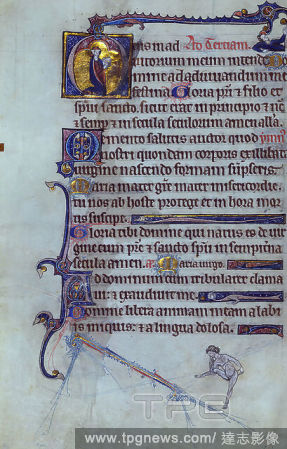 Deus in ad Ad Terciam
iutorium meum intende Do
mine ad adiuuandum me
festina Gloria pri & filio et
spui sancto. sicut erat in principio & nc
& semp & in secula seculorum amen alla.
Memento salutis auctor quod
nostri quondam corporis ex illibata
uirgine nascendo formam sumpseris.
Maria mater gre mater misericordie.
tu nos ab hoste protege et in hora mor
tis suscipe.
Gloria tibi domine qui natus es de uir
gine cum pre & sancto spu in sempiterna
secula amen. a. Maria uirgo.
Ad dominum cum tribularer clama
ui: & exaudiuit me.
Domine libera animam meam a labi
is iniquis: & a lingua dolosa.
TPG
www.tpgnews.com / 達志影像